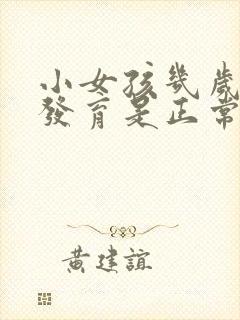 小女孩幾歲
發育是正常
黃建誼